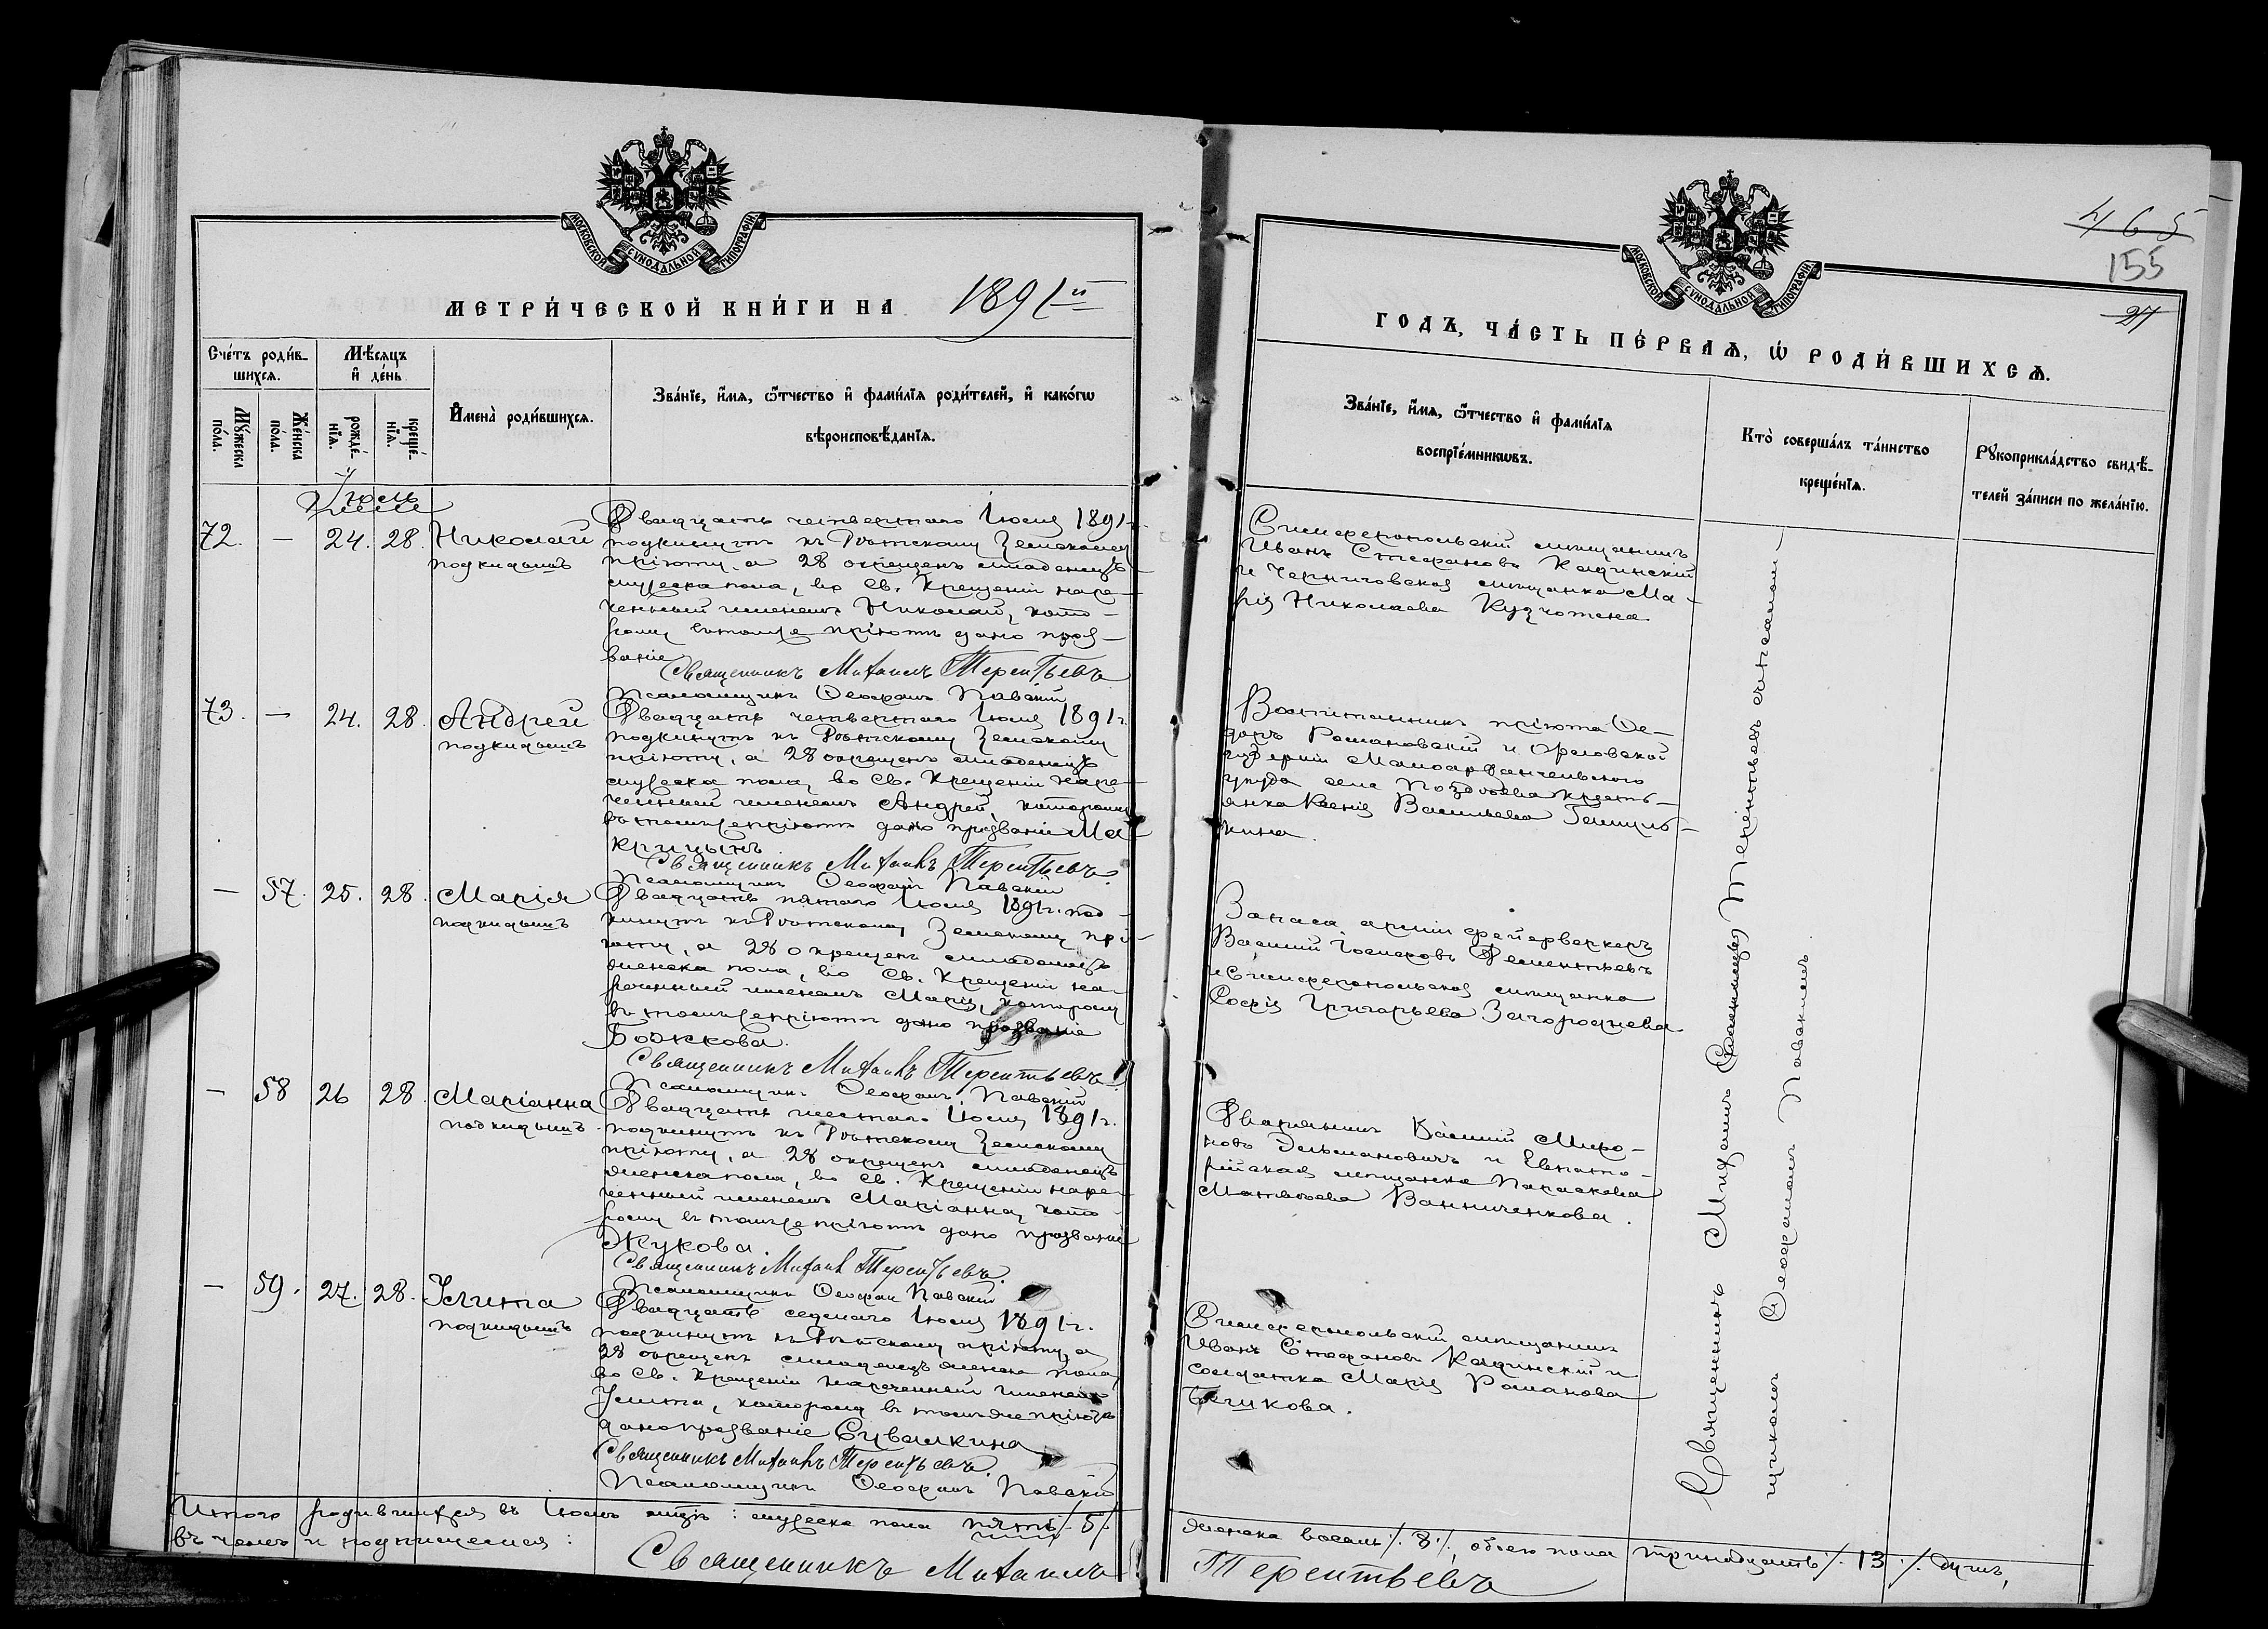 МОСКОВСКОЙ СѴНОДАЛЬНОЙ ТИПОГРАФІИ
МЕТРИ́ЧЕСКОЙ КНИ́ГИ НА 1891й
Сче́тъ роди́в-
шихся.
Мѣ́сяцъ
и҆ де́нь
Мꙋ́жеска
по́ла.
Же́нска
по́ла.
рожде́-
нїѧ.
креще́-
нїѧ.
И҆мена̀ роди́вшихсѧ.
Зва́нїе, и҆́мѧ, ѻ҆́тчество и҆ фами́лїѧ роди́телей, и҆ како́гѡ
вѣроисповѣ́данїѧ.
Іюль
72. — 24. 28. Николай
подкидышъ
Двадцать четвертаго Іюля 1891 г.
подкинутъ къ Дѣтскому Земскому
пріюту, а 28 окрещенъ младенецъ
мужеска пола, во Св. Крещеніи наре-
ченный именемъ Николай, кото-
рому въ томъ же пріютѣ дано проз-
ваніе
Священникъ Михаилъ Терентьевъ
Псаломщикъ Ѳеофанъ Павскій
73. — 24. 28. Андрей
подкидышъ
Двадцать четвертаго Іюля 1891 г.
подкинутъ къ Дѣтскому Земскому
пріюту, а 28 окрещенъ младенецъ
мужеска пола, во Св. Крещеніи наре-
ченный именемъ Андрей, которому
въ томъ же пріютѣ дано прозваніе Ма-
крицынъ
Священникъ Михаилъ Терентьевъ.
Псаломщикъ Ѳеофанъ Павскій
— 57. 25. 28. Марія
подкидышъ
Двадцать пятаго Іюля 1891 г. под-
кинутъ къ Дѣтскому Земскому прі-
юту, а 28 окрещенъ младенецъ
женска пола, во Св. Крещеніи на-
реченный именемъ Марія, которому
въ томъ же пріютѣ дано прозваніе
Божкова.
Священникъ Михаилъ Терентьевъ.
Псаломщикъ Ѳеофанъ Павскій
— 58 26 28. Маріанна
подкидышъ.
Двадцать шестаго Іюля 1891 г.
подкинутъ къ Дѣтскому Земскому
пріюту, а 28 окрещенъ младенецъ
женска пола, во Св. Крещеніи наре-
ченный именемъ Маріанна, кото-
рому въ томъ же пріютѣ дано прозваніе
Жукова.
Священникъ Михаилъ Терентьевъ.
Псаломщикъ Ѳеофан Павскій
— 59. 27. 28. Улита
подкидышъ
Двадцать седьмаго Іюля 1891 г.
подкинутъ къ Дѣтскому пріюту, а
28 окрещенъ младенецъ женска пола,
во Св. Крещеніи нареченный именемъ
Улита, которому въ томъ же пріютѣ
дано прозваніе Сувалкина
Священникъ Михаилъ Терентьевъ.
Псаломщикъ Ѳеофанъ Павскій
Итого родившихся въ Іюлѣ мцѣ: мужеска пола пять /.5/.
въ чемъ и подпишемся:
Священникъ Михаилъ
МОСКОВСКОЙ СѴНОДАЛЬНОЙ ТИПОГРАФІИ
465
155
21
ГОДЪ, ЧА́СТЬ ПЕ́РВАѦ, Ѡ҆ РОДИ́ВШИХСѦ.
Зва́нїе, и҆́мѧ, ѻ҆́тчество и҆ фами́лїѧ
воспрїе́мникѡвъ.
Кто̀ соверша́лъ та́инство
креще́нїѧ.
Рꙋкоприкла́дство свидѣ́-
телей за́писи по жела́нїю.
Симферопольскій мѣщанинъ
Иванъ Стефановъ Кадинскій
и Черниговская мѣщанка Ма-
рія Николаева
Воспитанникъ пріюта Ѳе-
доръ Романовскій и Орловской
губерніи Малоархангельскаго
уѣзда села Поздѣева кресть-
янка Ксенія Васильева
кина.
Запаса арміи фейерверкеръ
Василій Іосифовъ Дементьевъ
и Симферопольская мѣщанка
Софія Григорьева Загороднева
Дворянинъ Василій Миро-
новъ Дельмановичъ и Евпато-
рійская мѣщанка Параскева
Матвѣева Ванниченкова.
Симферопольскій мѣщанинъ
Иванъ Стефановъ Кадинскій и
солдатка Марія Романова
Бычкова.
Священникъ Михаилъ Терентьевъ съ псалом-
щикомъ Ѳеофаномъ Павскимъ
женска восемь /.8/., обоего пола тринадцать /.13./. душъ,
Терентьевъ